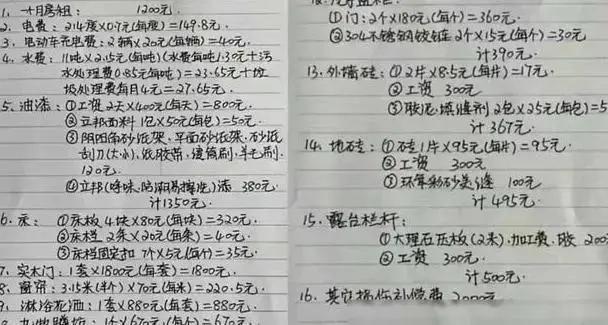 1、十月房租： 1200元.
2、电费：214度×0.7元(每度)=149.8元.
3、电动车充电费：2辆×20元(每辆)=40元.
4、水费：11吨×2.15元(每吨)(水费每吨1.30元+污
水处理费0.85元每吨)=23.65元+垃
圾处理费每月4元=27.65元.
5、油漆：①工资2天×400元(每天)=800元.
②立邦面料1包×50元(每包)=50元.
③阴阳角砂纸架.平面砂纸架.砂纸
刮刀(大小).纸胶带.滚筒刷.羊毛刷.
120元.
④立邦(净味.防潮易擦洗)漆 380元.
计1350元.
6、床：①床板4块×80元(每块)=320元.
②床档2条×20元(每条)=40元.
③床档固定扣7个×5元(每个)=35元.
7、实木门：1套×1800元(每套)=1800元.
8、窗帘：3.15米(半个)×70元(每米)=220.5元.
9、淋浴花洒：1套×880元(每套)=880元.
1个×670元(每个)=670元.
①门：2个×180元(每个)=360元.
②304不锈钢铰链2个×15元(每个)=30元
计390元.
13.外墙砖：①2片×8.5元(每片)=17元.
②工资 300元
③胶泥.填缝剂2包×25元(每包)=5
计367元.
14、地砖：①砖1片×95元(每片)=95元.
②工资 300元
③环氧彩砂美缝 100元
计495元.
15.露台栏杆：
①大理石压板(2米).加工费.胶 200
②工资 300元.
计500元.
16.其它损伤补偿费 2000元